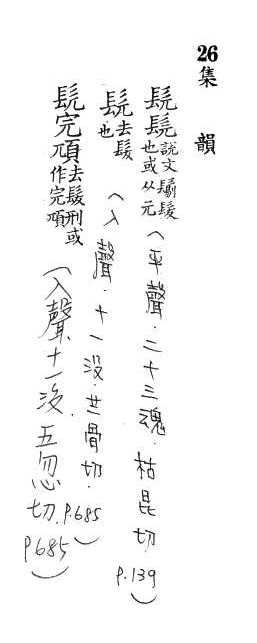 26 集 韻
髡髡 說文鬄髮也或从元(平聲.二十三魂.枯昆切 P.139)
髡 去髮也(入聲.十一没.苦骨切.P.685)
髡完頑 去髮刑或作完頑(入聲.十一没.五忽切.P685)